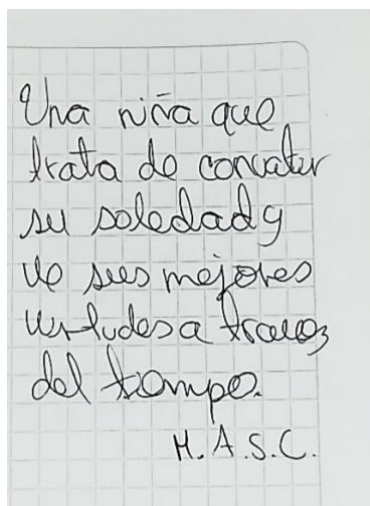 Una niña que
trata de concater
su soledad y
ve sus mejores
virtudes a traves
del tiempo.
M.A.S.C.